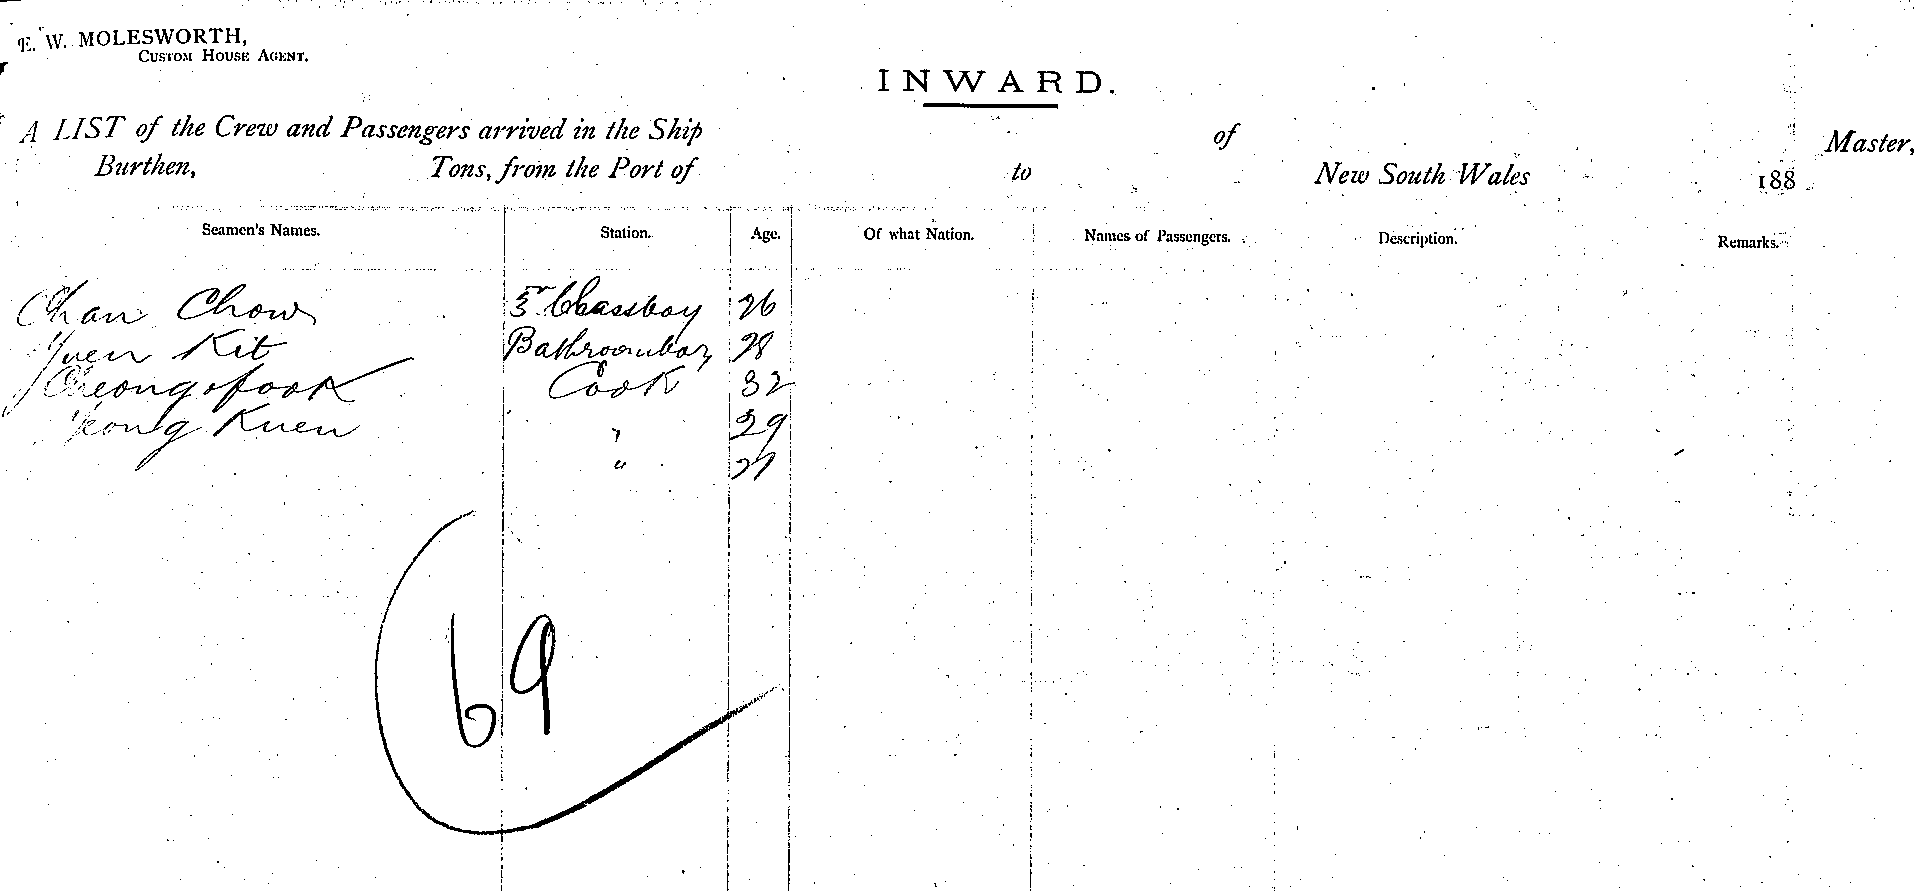 E. W. MOLESWORTH,
CUSTOM HOUSE AGENT.
INWARD.
A LIST of the Crew and Passengers arrived in the Ship of Master,
Burthen, Tons, from the Port of to New South Wales 188
Seamen's Names. Station. Age. Of what Nation. Names of Passengers. Description. Remarks.
Chan Chow 26
Yuen Kit 28
Cook 32
Yeong Kuen " 29
" 27
69